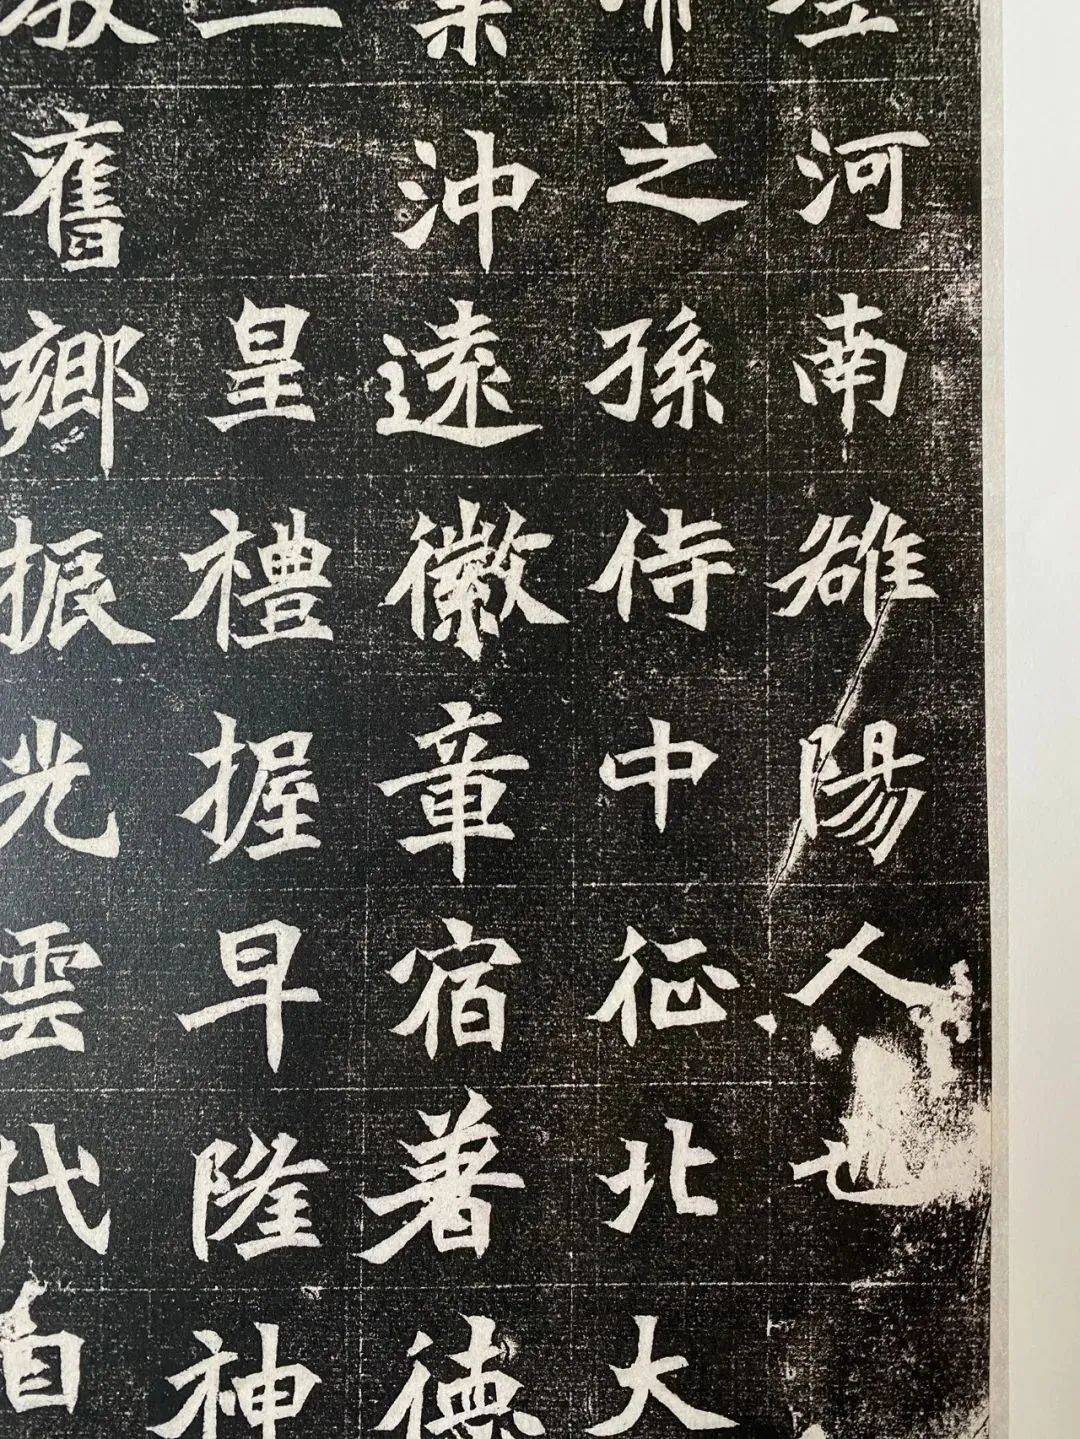 河南雒陽人也
之孫侍中征北大
沖遠徽章宿著德
皇禮握早隆神
舊鄉振光雲代自